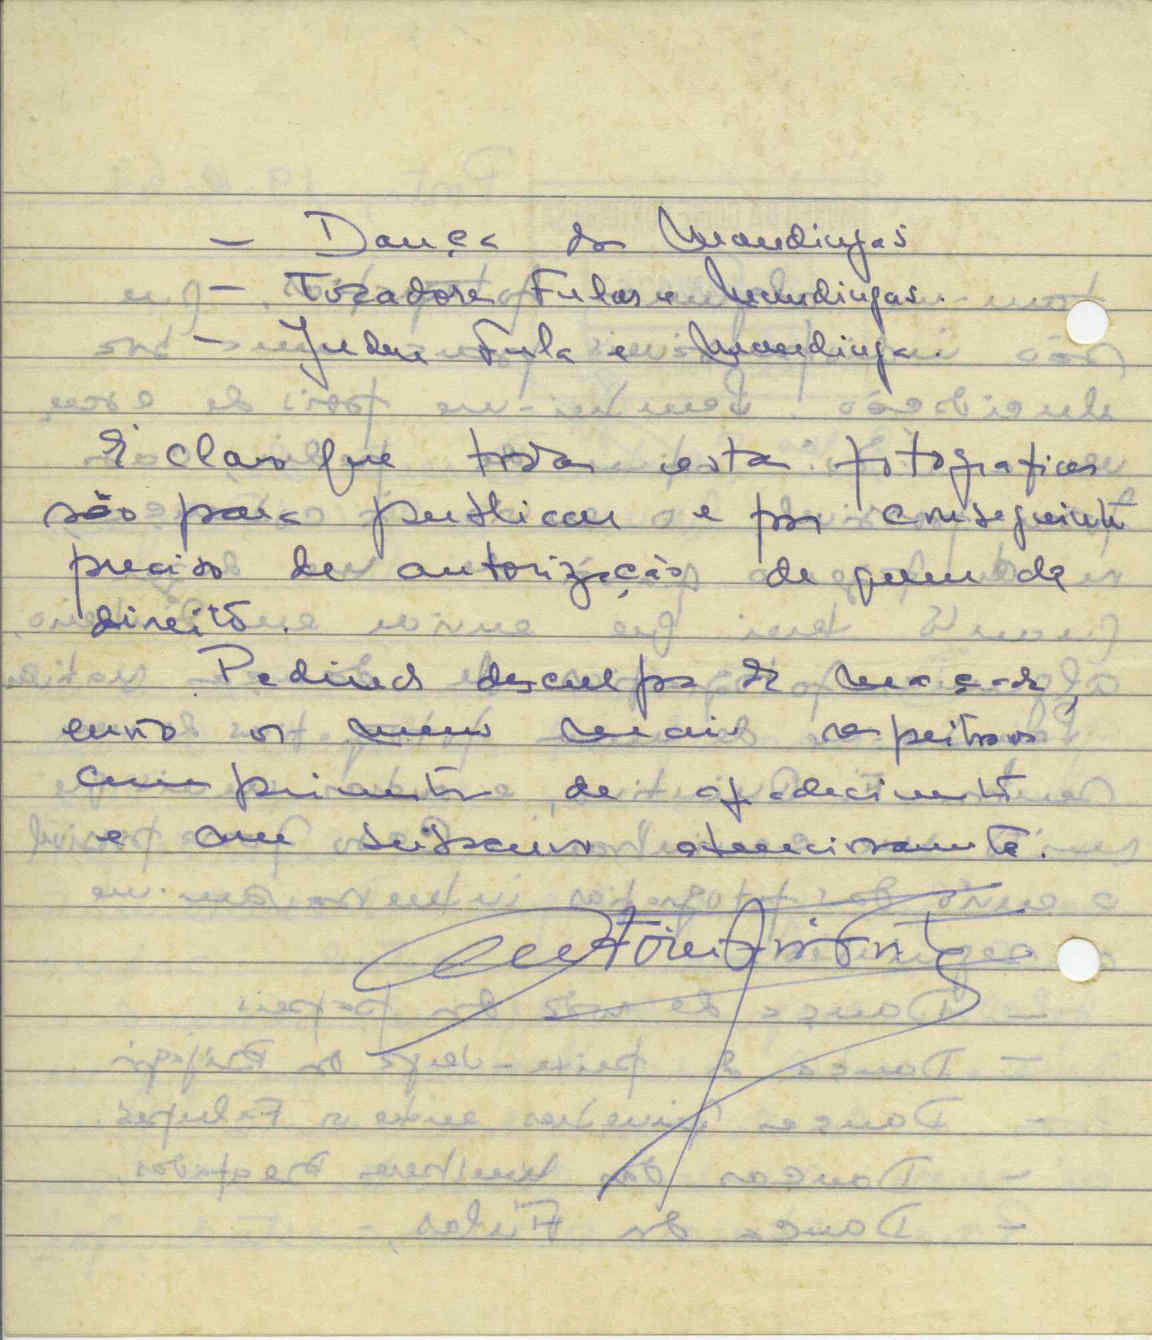 — Dança dos Mandingas
— Tocadores Fulas e Mandingas.
— Fula e Mandinga.
É claro que todas estas fotografias
são para publicar e por conseguinte
preciso de autorização de quem de
direito.
Pedindo desculpa da maçada,
envio os meus mais respeitosos
cumprimentos de agradecimento
e me subscrevo atenciosamente.